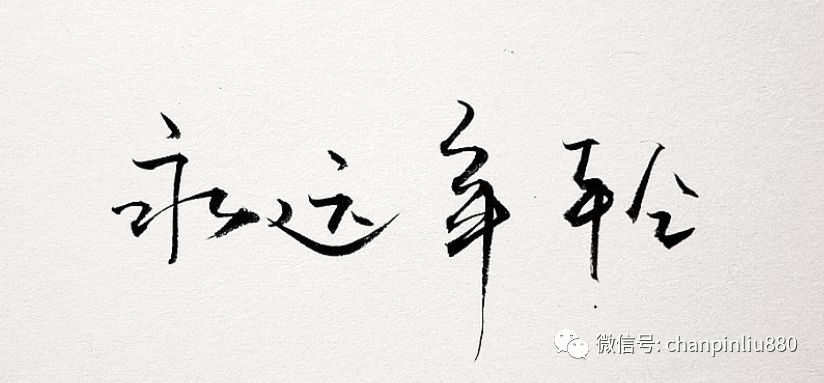 永远年轻
微信号: chanpinliu880